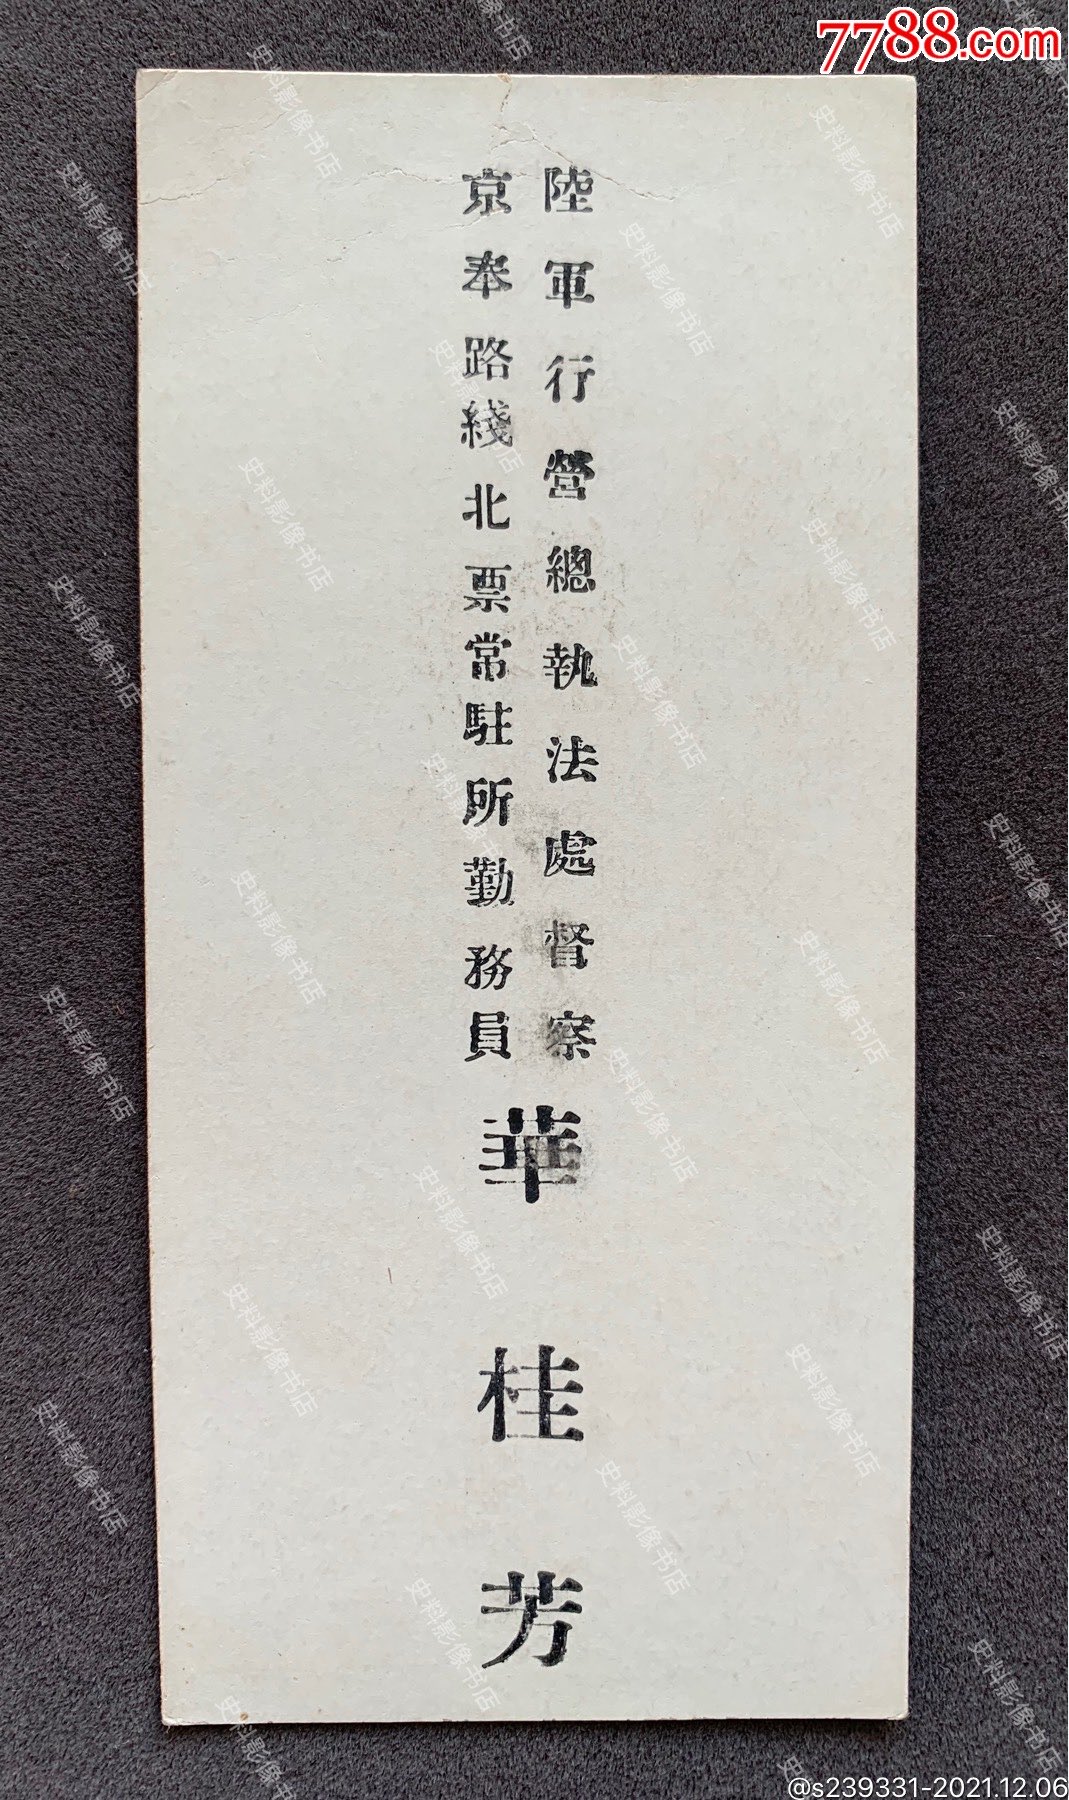 7788.com
陸軍行營總執法處督察
京奉路綫北票常駐所勤務員
華桂芳
史料影像书店
@s239331-2021.12.06